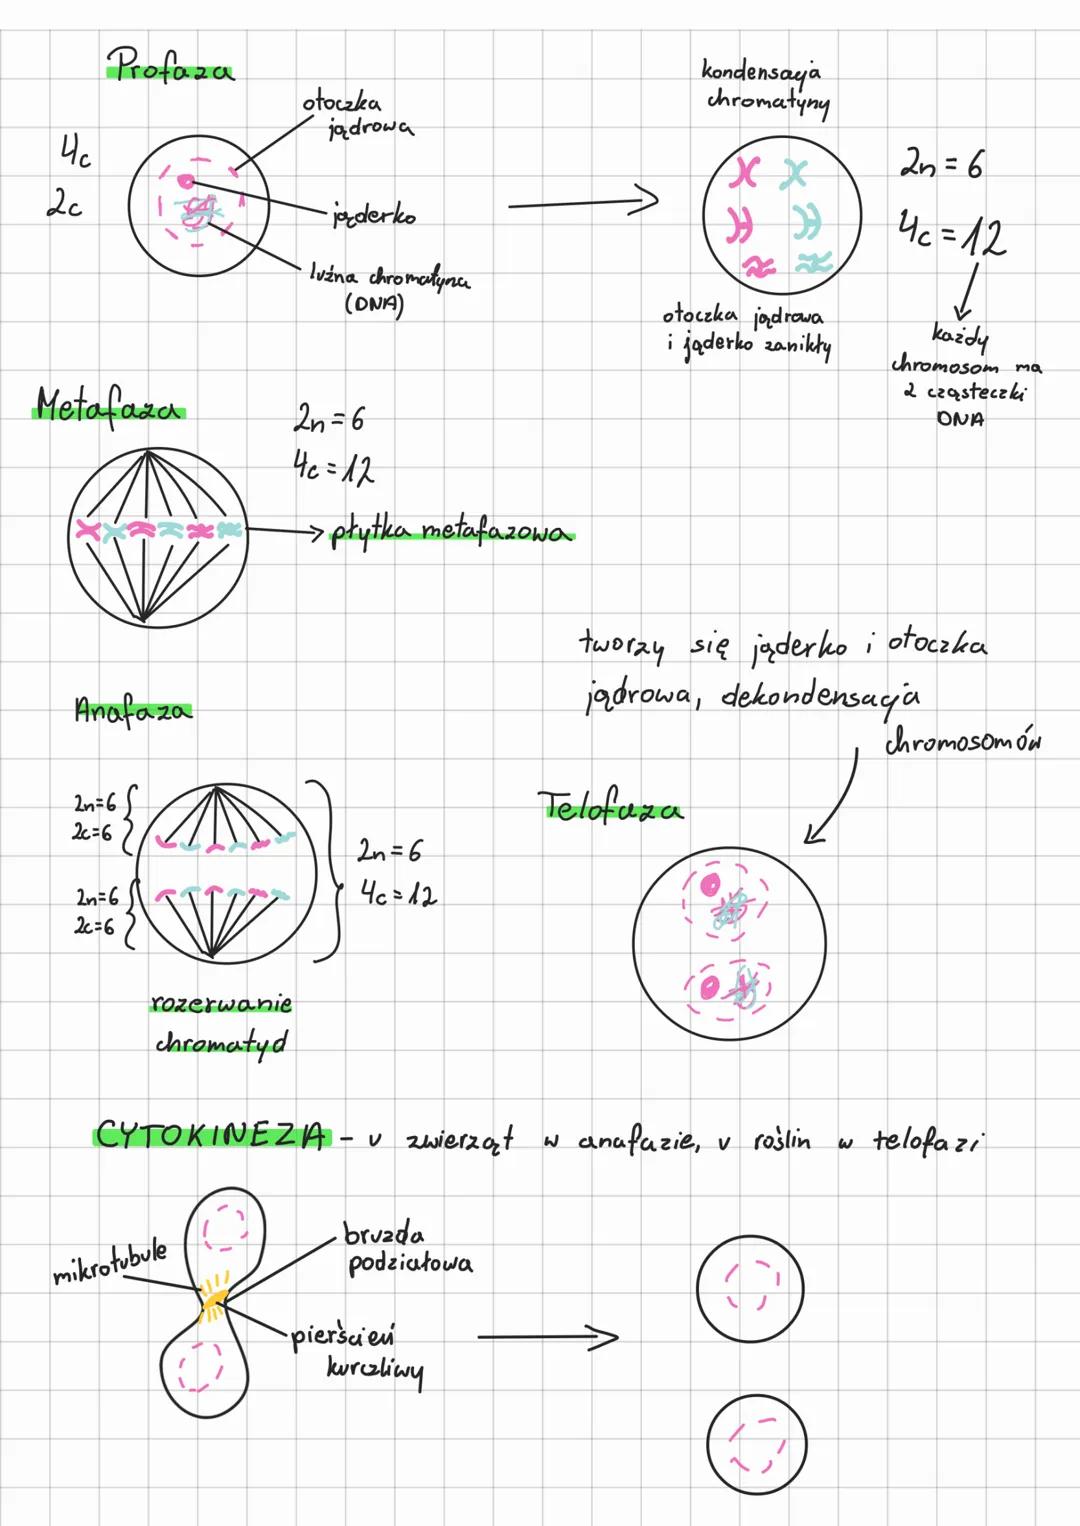 Profaza
otoczka
jądrowa
4c
2c
jąderko
luźna chromatyna
(DNA)
kondensacja
chromatyny
2n = 6
4c = 12
otoczka jądrowa
i jąderko zanikły
każdy
chromosom ma
2 cząsteczki
DNA
Metafaza
2n = 6
4c = 12
płytka metafazowa
Anafaza
2n=6
2c=6
2n=6
2c=6
2n=6
4c=12
rozerwanie
chromatyd
tworzy się jąderko i otoczka
jądrowa, dekondensacja
chromosomów
Telofaza
CYTOKINEZA - u zwierząt w anafazie, u roślin w telofazi
mikrotubule
bruzda
podziałowa
pierścień
kurczliwy